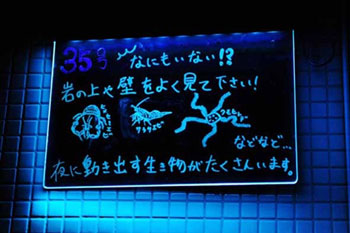 35号 なにもいない!?
岩の上や壁をよく見て下さい!
などなど…
夜に動き出す生き物がたくさんいます。